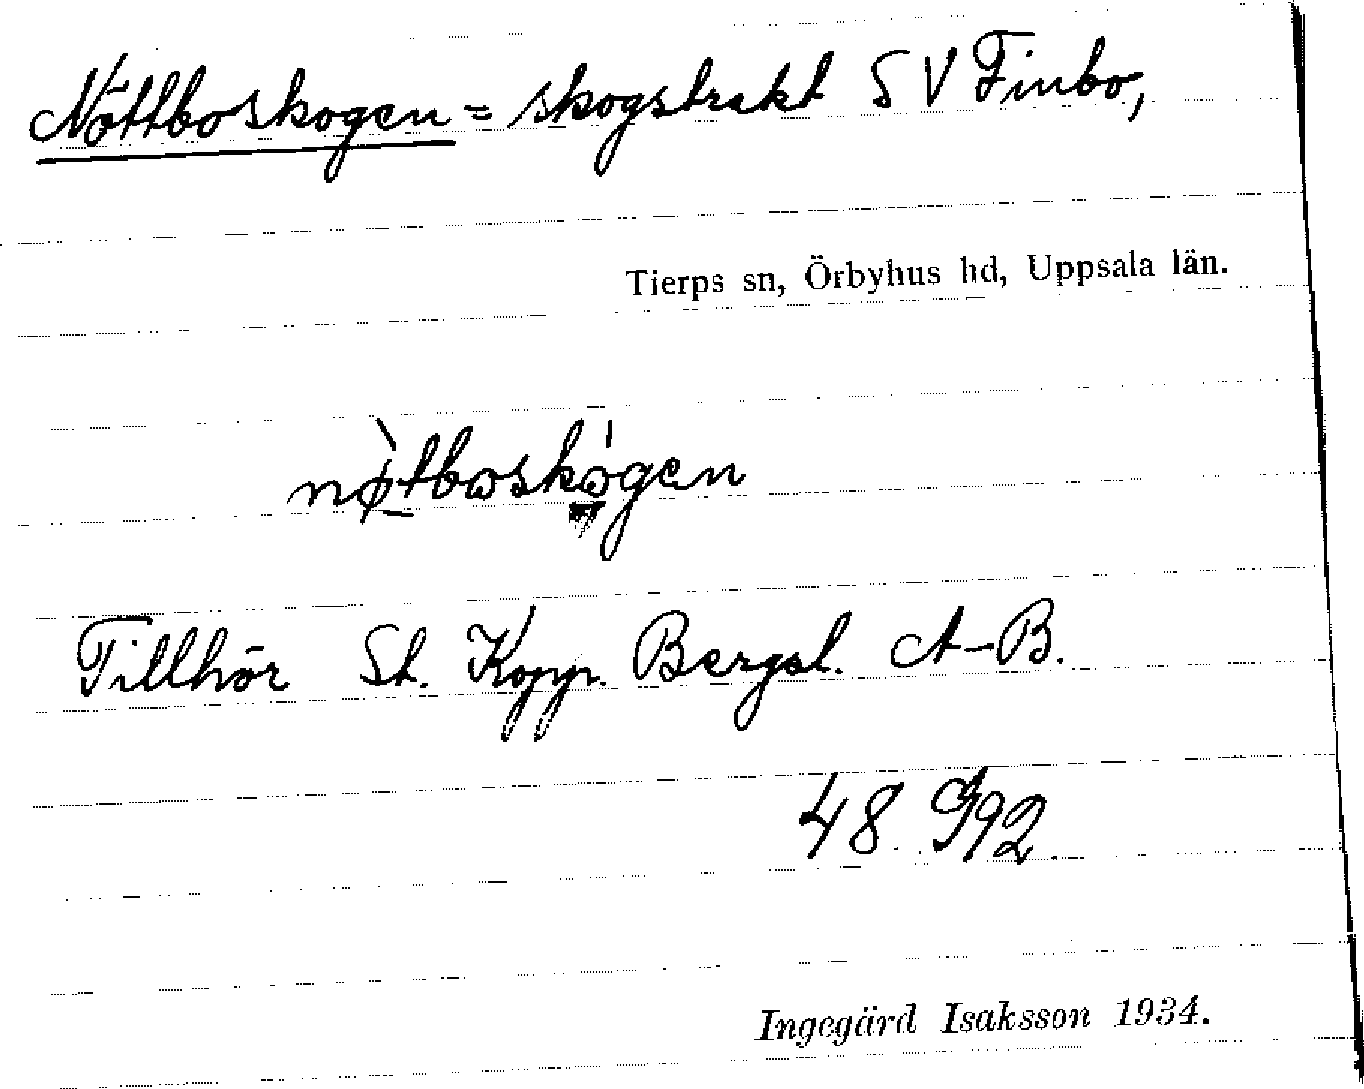 Nöttboskogen = skogstrakt SV Finbo,
Tierps sn, Örbyhus hd, Uppsala län.
nø̀tboskó̤gen
Tillhör St. Kopp. Bergsl. A-B.
48 992
Ingegärd Isaksson 1934.